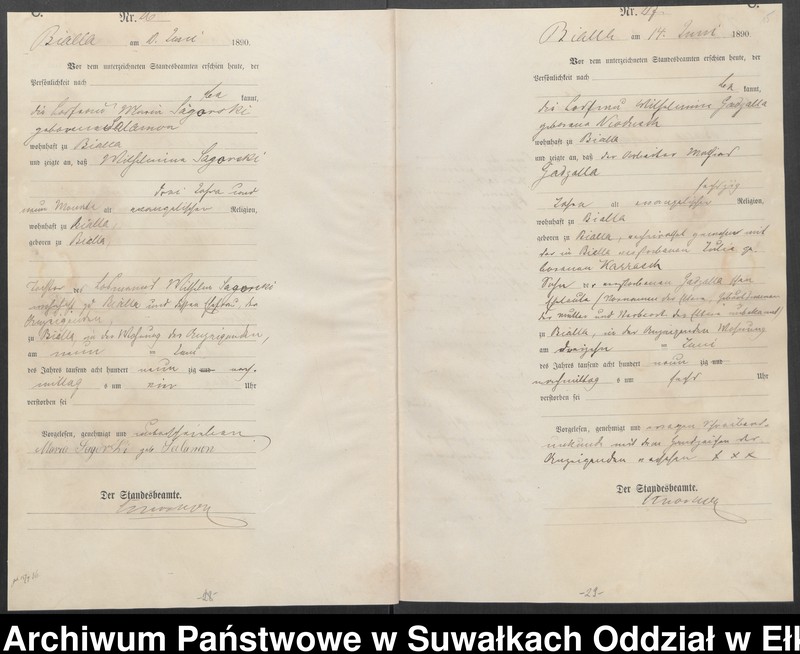 C.
Nr. 26
Bialla am 0. Juni 1890.
Vor dem unterzeichneten Standesbeamten erschien heute, der
Persönlichkeit nach
be kannt,
die Losfrau Maria Sagorski
geborene Salamon
wohnhaft zu Bialla
und zeigte an, daß Wilhelmine Sagorski
drei Jahre und
neun Monate alt evangelischer Religion,
wohnhaft zu Bialla,
geboren zu Bialla,
Tochter des Losmanns Wilhelm Sagorski
wohnhaft zu Bialla und dessen Ehefrau, der
Anzeigenden,
zu Bialla, in der Wohnung des Anzeigenden,
am neun Juni
des Jahres tausend acht hundert neun zig und nach-
mittag um vier Uhr
verstorben sei
Vorgelesen, genehmigt und unterschrieben
Maria Sagorski geb. Salamon
Der Standesbeamte.
-28-
C.
Nr. 27.
Bialla am 14. Juni 1890.
Vor dem unterzeichneten Standesbeamten erschien heute, der
Persönlichkeit nach
be kannt,
die Losfrau Wilhelmine Gadzalla
geborene
wohnhaft zu Bialla
und zeigte an, daß der
Gadzalla
sechzig
Jahre alt evangelischer Religion,
wohnhaft zu Bialla
geboren zu Bialla, verheirathet gewesen mit
der in Bialla verstorbenen ge-
borenen Karrasch
Sohn der verstorbenen Gadzalla
Eheleute (Vornamen der Eltern, Geburtsnamen
der Mutter und der Eltern unbekannt)
zu Bialla, in der Anzeigenden Wohnung
am dreizehn Juni
des Jahres tausend acht hundert neun zig und
nachmittag um sechs Uhr
verstorben sei
Vorgelesen, genehmigt und wegen Schreibens-
unkunde mit dem Handzeichen der
Anzeigenden versehen x x x
Der Standesbeamte.
-29-
Archiwum Państwowe w Suwałkach Oddział w Ełk